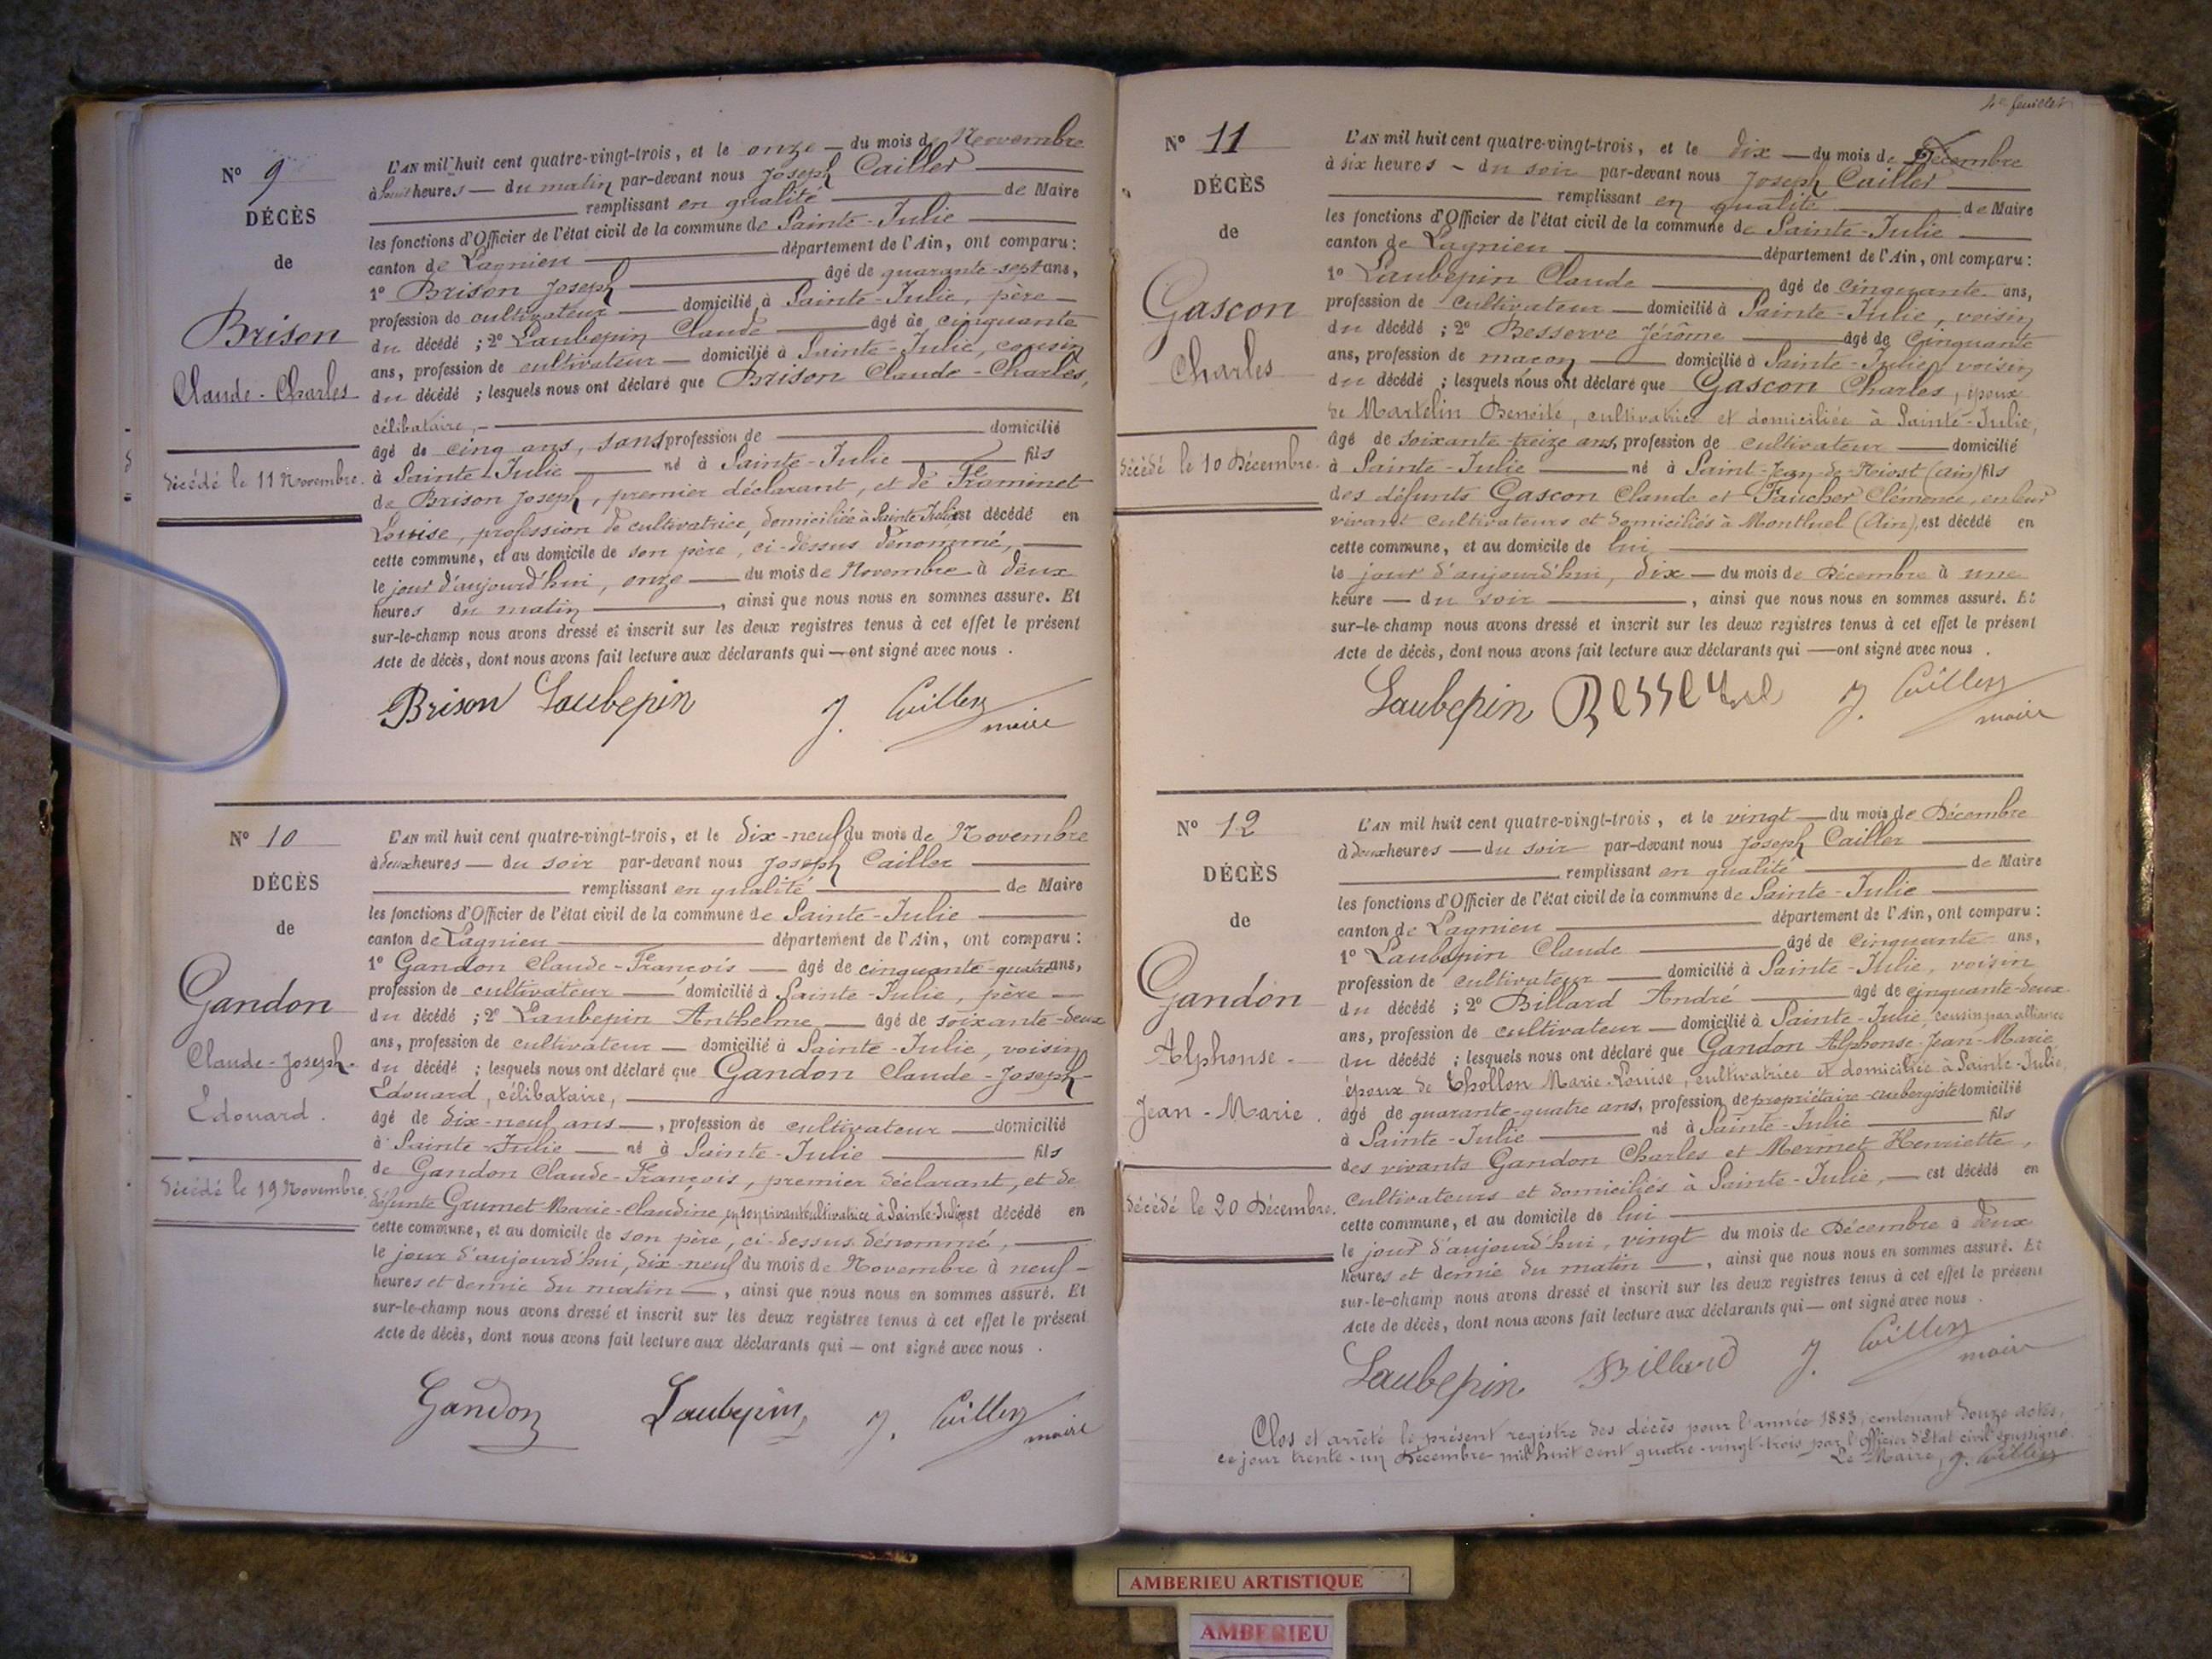 N° 9
DÉCÈS
de
Brison
Claude-Charles
décédé le 11 Novembre.
L'AN mil huit cent quatre-vingt-trois, et le onze — du mois de Novembre
à huit heures — du matin par-devant nous Joseph Cailler
remplissant en qualité de Maire
les fonctions d'Officier de l'état civil de la commune de Sainte-Julie
canton de Lagnieu département de l'Ain, ont comparu :
1° Brison Joseph âgé de quarante-sept ans,
profession de cultivateur — domicilié à Sainte-Julie, père
du décédé ; 2° Laubepin Claude âgé de cinquante
ans, profession de cultivateur — domicilié à Sainte-Julie, cousin
du décédé ; lesquels nous ont déclaré que Brison Claude-Charles,
célibataire,
âgé de cinq ans, sans profession de domicilié
à Sainte-Julie né à Sainte-Julie fils
de Brison Joseph, premier déclarant, et de Framinet
Louise, profession de cultivatrice, domiciliée à Sainte Julie est décédé en
cette commune, et au domicile de son père, ci-dessus dénommé,
le jour d'aujourd'hui, onze — du mois de Novembre à deux
heures du matin, ainsi que nous nous en sommes assuré. Et
sur-le-champ nous avons dressé et inscrit sur les deux registres tenus à cet effet le présent
Acte de décès, dont nous avons fait lecture aux déclarants qui — ont signé avec nous.
Brison Laubepin J. Cailler
maire
N° 10
DÉCÈS
de
Gandon
Claude-Joseph-
Edouard.
décédé le 19 Novembre.
L'AN mil huit cent quatre-vingt-trois, et le dix-neuf du mois de Novembre
à deux heures — du soir par-devant nous Joseph Cailler
remplissant en qualité de Maire
les fonctions d'Officier de l'état civil de la commune de Sainte-Julie
canton de Lagnieu département de l'Ain, ont comparu :
1° Gandon Claude-François — âgé de cinquante-quatre ans,
profession de cultivateur — domicilié à Sainte-Julie, père
du décédé ; 2° Laubepin Anthelme — âgé de soixante-deux
ans, profession de cultivateur — domicilié à Sainte-Julie, voisin
du décédé ; lesquels nous ont déclaré que Gandon Claude-Joseph-
Edouard, célibataire,
âgé de dix-neuf ans —, profession de cultivateur — domicilié
à Sainte-Julie — né à Sainte-Julie fils
de Gandon Claude-François, premier déclarant, et de
défunte Grumet Marie-Claudine, en son vivant cultivatrice à Sainte-Julie est décédé en
cette commune, et au domicile de son père, ci-dessus dénommé,
le jour d'aujourd'hui, dix-neuf du mois de Novembre à neuf
heures et demie du matin —, ainsi que nous nous en sommes assuré. Et
sur-le-champ nous avons dressé et inscrit sur les deux registres tenus à cet effet le présent
Acte de décès, dont nous avons fait lecture aux déclarants qui — ont signé avec nous.
Gandon Laubepin J. Cailler
maire
4e feuillet
N° 11
DÉCÈS
de
Gascon
Charles
décédé le 10 Décembre.
L'AN mil huit cent quatre-vingt-trois, et le dix — du mois de Décembre
à six heures - du soir par-devant nous Joseph Cailler
remplissant en qualité de Maire
les fonctions d'Officier de l'état civil de la commune de Sainte-Julie
canton de Lagnieu département de l'Ain, ont comparu :
1° Laubepin Claude âgé de cinquante ans,
profession de cultivateur — domicilié à Sainte-Julie, voisin
du décédé ; 2° Besserve Jérôme âgé de cinquante
ans, profession de maçon domicilié à Sainte-Julie, voisin
du décédé ; lesquels nous ont déclaré que Gascon Charles, époux
de Martelin Benoite, cultivatrice et domiciliée à Sainte-Julie,
âgé de soixante-treize ans, profession de cultivateur — domicilié
à Sainte-Julie né à Saint-Jean-de-Niost (Ain) fils
des défunts Gascon Claude et Faucher Clémence, en leur
vivant cultivateurs et domiciliés à Montluel (Ain), est décédé en
cette commune, et au domicile de lui
le jour d'aujourd'hui, dix — du mois de Décembre à une
heure — du soir, ainsi que nous nous en sommes assuré. Et
sur-le-champ nous avons dressé et inscrit sur les deux registres tenus à cet effet le présent
Acte de décès, dont nous avons fait lecture aux déclarants qui — ont signé avec nous.
Laubepin Besserve J. Cailler
maire
N° 12
DÉCÈS
de
Gandon
Alphonse-
Jean-Marie.
décédé le 20 Décembre.
L'AN mil huit cent quatre-vingt-trois, et le vingt — du mois de Décembre
à deux heures — du soir par-devant nous Joseph Cailler
remplissant en qualité de Maire
les fonctions d'Officier de l'état civil de la commune de Sainte-Julie
canton de Lagnieu département de l'Ain, ont comparu :
1° Laubepin Claude âgé de cinquante ans,
profession de cultivateur — domicilié à Sainte-Julie, voisin
du décédé ; 2° Billard André âgé de cinquante-deux
ans, profession de cultivateur — domicilié à Sainte-Julie, cousin par alliance
du décédé ; lesquels nous ont déclaré que Gandon Alphonse-Jean-Marie
époux de Chollon Marie-Louise, cultivatrice et domiciliée à Sainte-Julie,
âgé de quarante-quatre ans, profession de propriétaire-aubergiste domicilié
à Sainte-Julie né à Sainte-Julie fils
des vivants Gandon Charles et Mermet Henriette,
cultivateurs et domiciliés à Sainte-Julie, — est décédé en
cette commune, et au domicile de lui
le jour d'aujourd'hui, vingt du mois de Décembre à deux
heures et demie du matin —, ainsi que nous nous en sommes assuré. Et
sur-le-champ nous avons dressé et inscrit sur les deux registres tenus à cet effet le présent
Acte de décès, dont nous avons fait lecture aux déclarants qui — ont signé avec nous.
Laubepin Billard J. Cailler
maire
Clos et arrêté le présent registre des décès pour l'année 1883, contenant douze actes,
ce jour trente-un Décembre mil huit cent quatre-vingt-trois par l'officier d'Etat civil soussigné.
Le Maire, J. Cailler
AMBERIEU ARTISTIQUE
AMBERIEU